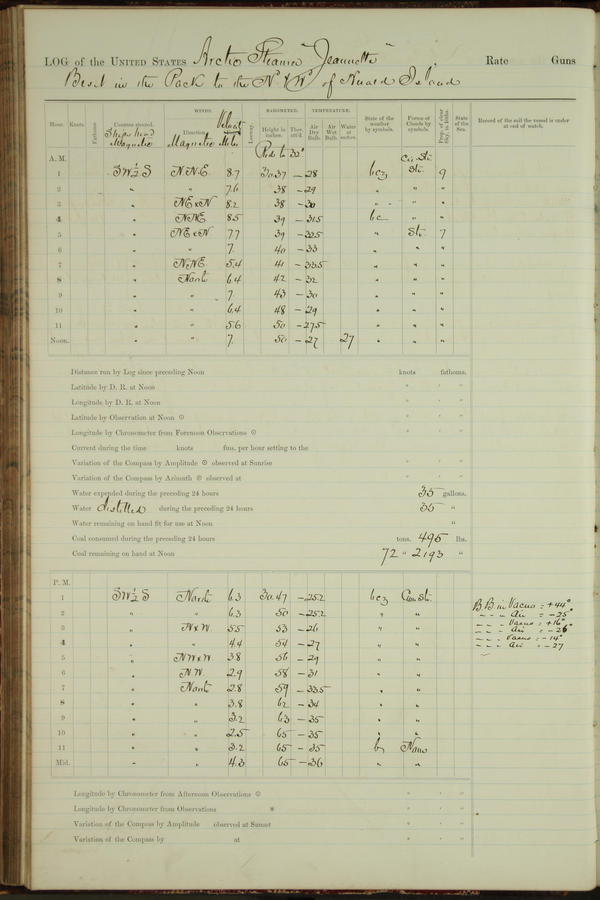 LOG of the UNITED STATES Arctic Steamer "Jeannette", Rate Guns
Beset in the Pack to the Nd & Wd of Herald Island
WINDS. BAROMETER. TEMPERATURE.
Hour. Knots. Fathoms. Courses steered. Direction. Leeway. Height in inches. Ther. att'd. Air Dry Bulb. Air Wet Bulb. Water at surface. State of the weather by symbols. Forms of Clouds by symbols. Prop. of clear Sky, in 10ths. State of the Sea. Record of the sail the vessel is under at end of watch.
Ship's head Magnetic Magnetic Red to 32°
A. M. Cir. St.
1 SW½S N.N.E. 8.7 30.37 -28 bcz Str. 9
2 " " 7.6 38 -29 " " "
3 " NExN 8.2 38 -30 " " "
4 " NNE 8.5 39 -31.5 bc " "
5 " NExN 7.7 39 -32.5 " Str. 7
6 " " 7. 40 -33 " " "
7 " N.N.E. 5.4 41 -33.5 " " "
8 " North 6.4 42 -32 " " "
9 " " 7. 43 -30 " " "
10 " " 6.4 48 -29 " " "
11 " " 5.6 50 -27.5 " " "
Noon. " " 7. 50 -27 27 " " "
Distance run by Log since preceding Noon knots fathoms.
Latitude by D. R. at Noon ° ′ ″
Longitude by D. R. at Noon ° ′ ″
Latitude by Observation at Noon ☉ ° ′ ″
Longitude by Chronometer from Forenoon Observations ☉ ° ′ ″
Current during the time knots fms. per hour setting to the
Variation of the Compass by Amplitude ☉ observed at Sunrise ° ′ ″
Variation of the Compass by Azimuth ☉ observed at ° ′ ″
Water expended during the preceding 24 hours 35 gallons.
Water distilled during the preceding 24 hours 35 "
Water remaining on hand fit for use at Noon "
Coal consumed during the preceding 24 hours tons. 495 lbs.
Coal remaining on hand at Noon 72 " 2193 "
P. M.
1 SW½S North 6.3 30.47 -25.2 bcz Cum St. B.B. in Vacuo = +44°
2 " " 6.3 50 -25.2 " " " " " Air = -25°
3 " NxW. 5.5 53 -26 " " " " " Vacuo = +16°
4 " " 4.4 54 -27 " " " " " Air = -26°
5 " NWxW. 3.8 56 -29 " " " " " Vacuo = -14°
6 " N.W. 2.9 58 -31 " " " " " Air = -27
7 " North 2.8 59 -33.5 " "
8 " " 3.8 62 -34 " "
9 " " 3.2 63 -35 " "
10 " " 2.5 65 -35 " "
11 " " 3.2 65 -35 bz None
Mid. " " 4.3 65 -36 " "
Longitude by Chronometer from Afternoon Observations ☉ ° ′ ″
Longitude by Chronometer from Observations * ° ′ ″
Variation of the Compass by Amplitude observed at Sunset ° ′ ″
Variation of the Compass by at ° ′ ″